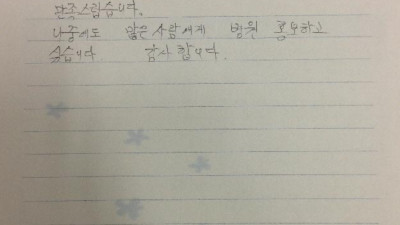 만족스럽습니다.
나중에도 많은 사람에게 병원 홍보하고
싶습니다. 감사합니다.